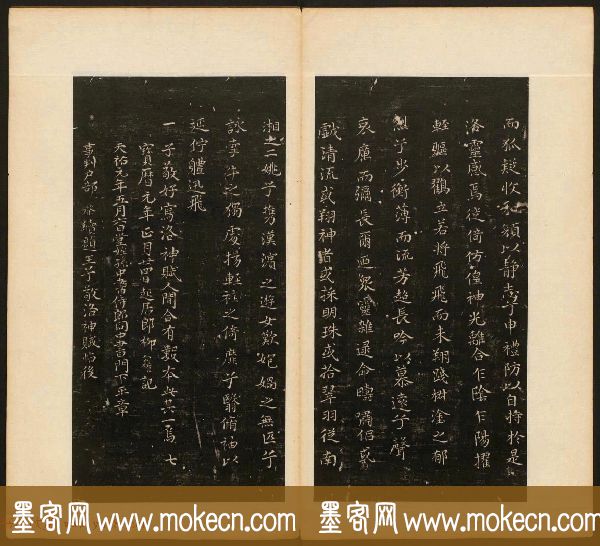 而狐疑收和顏以靜志兮申禮防以自持於是
洛靈感焉徙倚仿偟神光離合乍陰乍陽擢
輕軀以鶴立若將飛飛而未翔踐椒塗之郁
烈兮步衡薄而流芳超長吟以慕遠兮聲
哀厲而彌長爾乃眾靈雜遝命疇嘯侶或
戲清流或翔神渚或採明珠或拾翠羽從南
湘之二姚兮攜漢濱之遊女歎匏媧之無匹兮
詠牽牛之獨處揚輕袿之倚靡兮翳脩袖以
延佇體迅飛
一子敬好寫洛神賦人間合有數本此其一焉
寶曆元年正月廿四日起居郎柳 記
天祐元年五月 中書侍郎同中書門下平章
事判戶部 題王子敬洛神賦 後
墨客网 www.mokecn.com
墨客网 www.mokecn.com